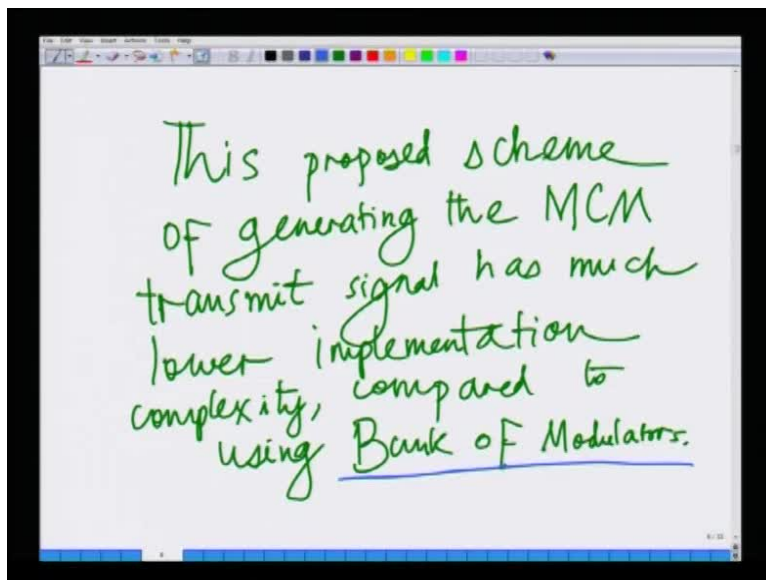 File Edit View Insert Actions Tools Help
This proposed scheme
of generating the MCM
transmit signal has much
lower implementation
complexity, compared to
using Bank of Modulators.